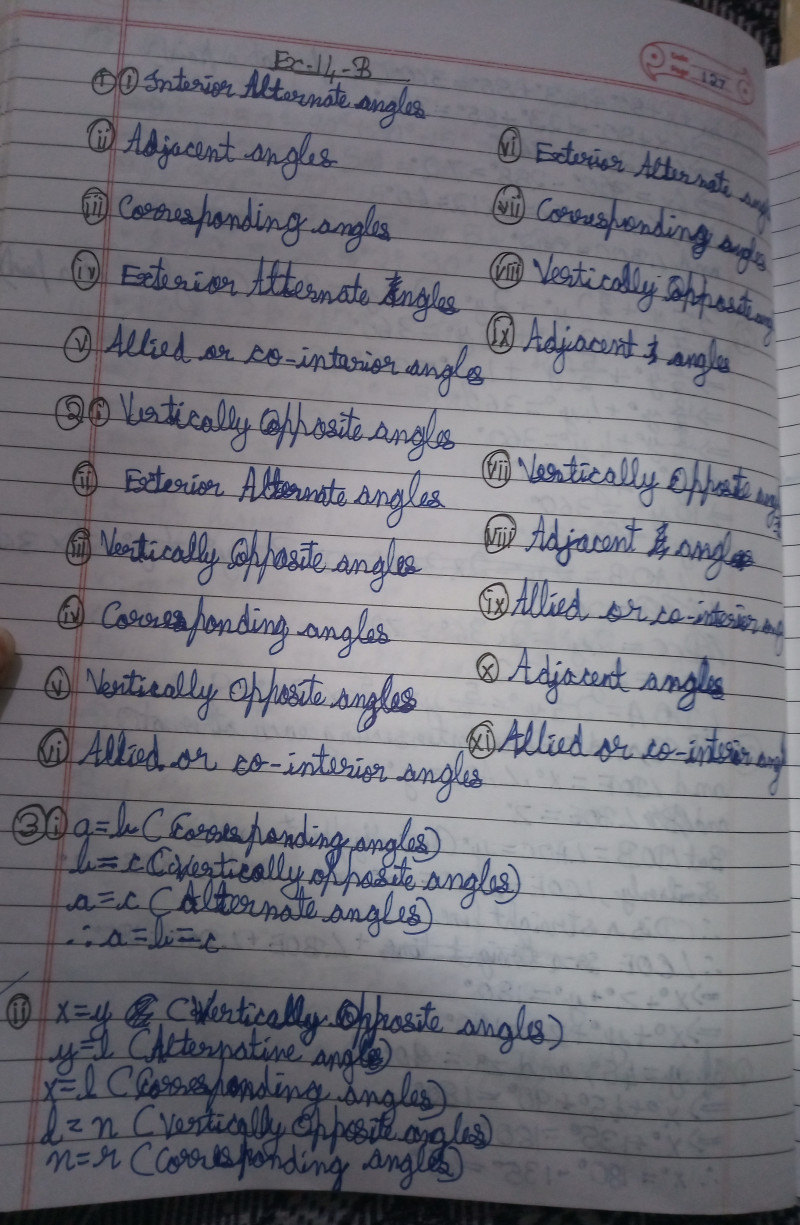 Ex-14-B
127
① i Interior Alternate angles
ii Adjacent angles
iii Corresponding angles
iv Exterior Alternate Angles
v Allied or co-interior angles
vi Exterior Alternate
vii Corresponding angles
viii Vertically Opposite
ix Adjacent angles
② i Vertically Opposite angles
ii Exterior Alternate angles
iii Vertically Opposite angles
iv Corresponding angles
v Vertically Opposite angles
vi Allied or co-interior angles
vii Vertically Opposite
viii Adjacent angles
ix Allied or co-interior
x Adjacent angles
xi Allied or co-interior
③ i a=b (Corresponding angles)
b=c (Vertically opposite angles)
a=c (Alternate angles)
∴ a=b=c
ii x=y (Vertically Opposite angles)
y=l (Alternatine angles)
x=l (Corresponding angles)
l=n (Vertically Opposite angles)
n=r (Corresponding angles)